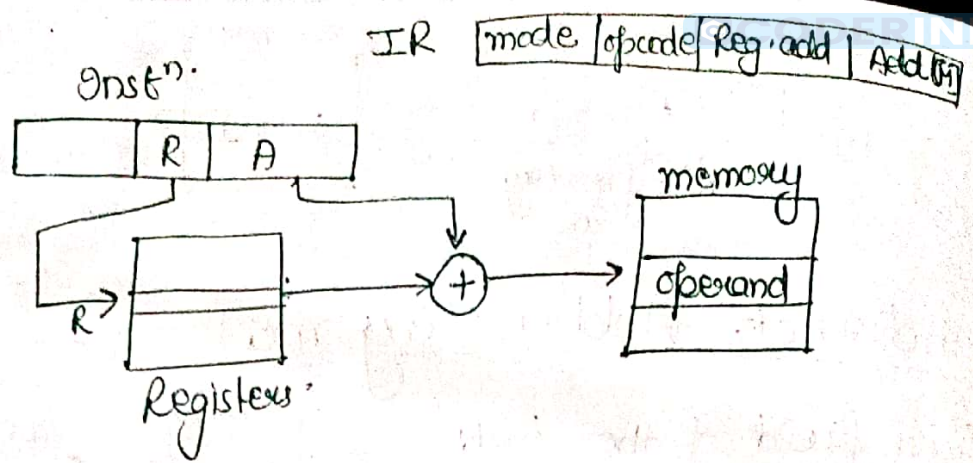 @CODERIN
IR mode opcode Reg. add Add[M]
Instⁿ.
R A
memory
+ operand
R
Registers.